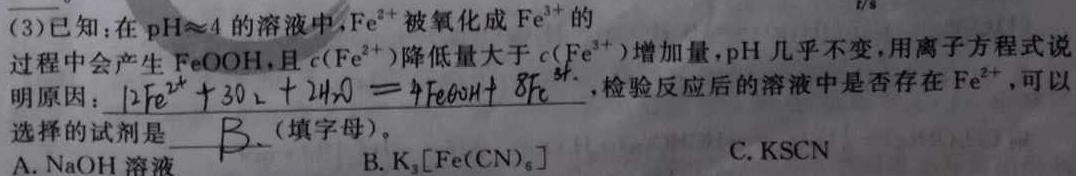 t/s
(3)已知:在 pH≈4 的溶液中,Fe²⁺ 被氧化成 Fe³⁺ 的
过程中会产生 FeOOH,且 c(Fe²⁺)降低量大于 c(Fe³⁺)增加量,pH 几乎不变,用离子方程式说
明原因: 12Fe²⁺ + 3O₂ + 2H₂O = 4FeOOH + 8Fe³⁺. ,检验反应后的溶液中是否存在 Fe²⁺,可以
选择的试剂是 B. (填字母)。
A. NaOH 溶液 B. K₃[Fe(CN)₆] C. KSCN